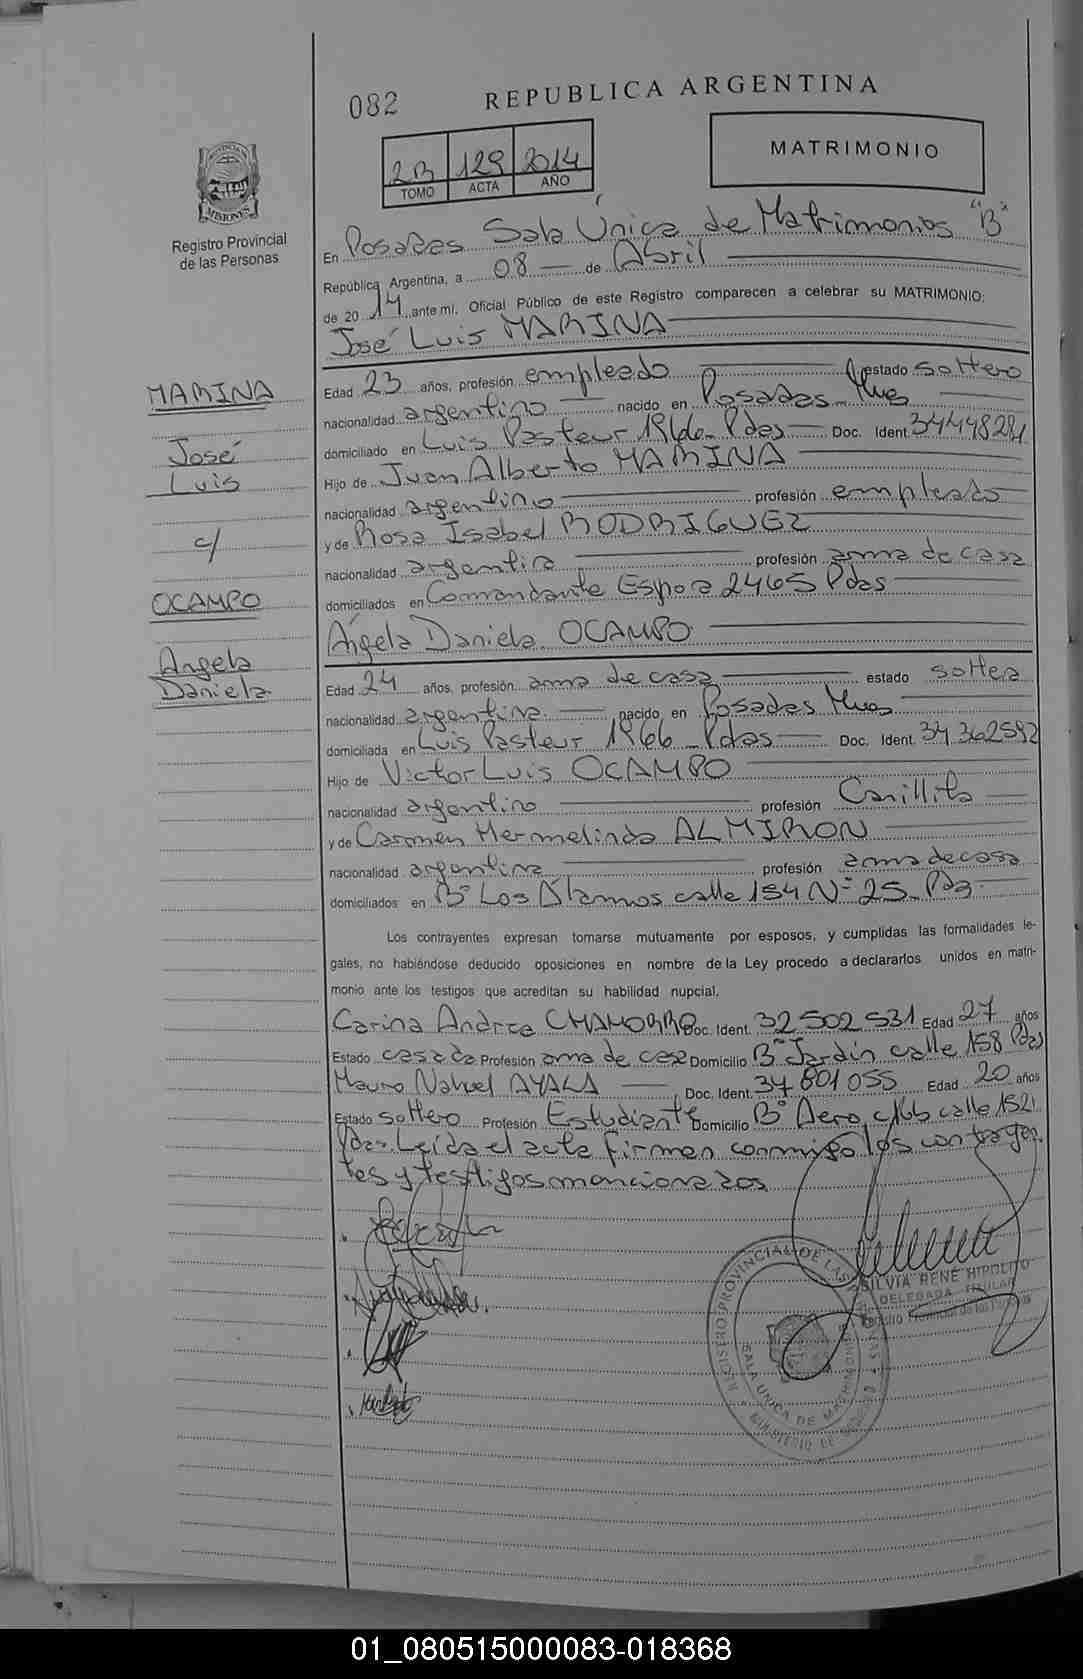 082 REPUBLICA ARGENTINA
2B 129 2014
TOMO ACTA AÑO
MATRIMONIO
PROVINCIA DE
MISIONES
Registro Provincial
de las Personas
En Posadas Sala Única de Matrimonios "B"
República Argentina, a 08 de Abril
de 2014 ante mi, Oficial Público de este Registro comparecen a celebrar su MATRIMONIO:
José Luis MARINA
MARINA
José
Luis
c/
OCAMPO
Angela
Daniela
Edad 23 años, profesión empleado estado soltero
nacionalidad argentino nacido en Posadas Mnes
domiciliado en Luis Pasteur 1966 Pdas Doc. Ident. 34448281
Hijo de Juan Alberto MARINA
nacionalidad argentino profesión empleado
y de Rosa Isabel RODRIGUEZ
nacionalidad argentina profesión ama de casa
domiciliados en Comandante Espora 2465 Pdas
Ángela Daniela OCAMPO
Edad 24 años, profesión ama de casa estado soltera
nacionalidad argentina nacido en Posadas Mnes
domiciliada en Luis Pasteur 1966 Pdas Doc. Ident. 34362592
Hijo de Victor Luis OCAMPO
nacionalidad argentino profesión Canillita
y de Carmen Hermelinda ALMIRON
nacionalidad argentina profesión ama de casa
domiciliados en B° Los Álamos calle 154 N° 25 Pdas
Los contrayentes expresan tomarse mutuamente por esposos, y cumplidas las formalidades le-
gales, no habiéndose deducido oposiciones en nombre de la Ley procedo a declararlos unidos en matri-
monio ante los testigos que acreditan su habilidad nupcial.
Carina Andrea CHAMORRO Doc. Ident. 32502531 Edad 27 años
Estado casada Profesión ama de casa Domicilio B° Jardín calle 158 Pdas
Mauro Nahuel AYALA Doc. Ident. 34801055 Edad 20 años
Estado soltero Profesión Estudiante Domicilio B° Aero club calle 152
Pdas. Leída el acta firman conmigo los contrayen
tes y testigos mencionados
SILVIA RENÉ HIPOLITO
DELEGADA TITULAR
Registro Provincial de las Personas
REGISTRO PROVINCIAL DE LAS PERSONAS
SALA UNICA DE MATRIMONIOS
MINISTERIO DE GOBIERNO
01_080515000083-018368